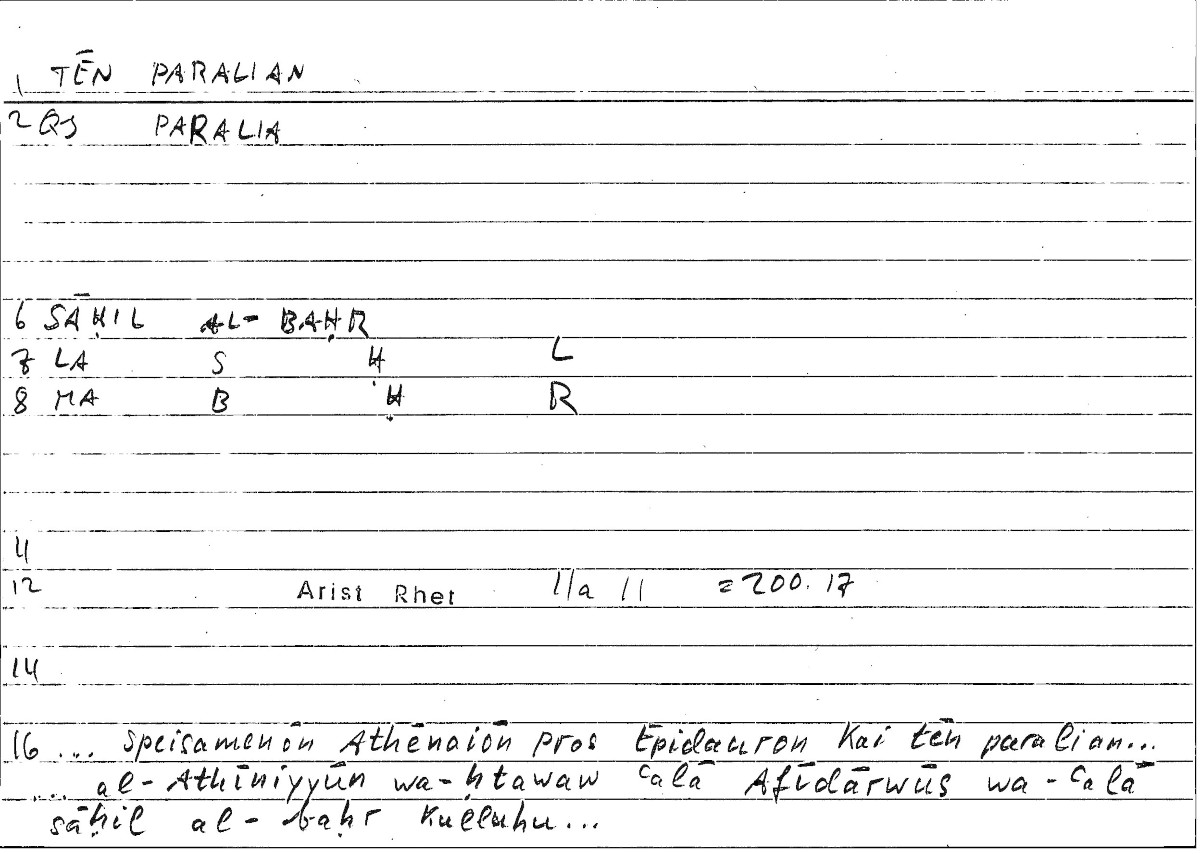 1 TĒN PARALIAN
2 QS PARALIA
6 SĀḤIL AL-BAḤR
7 LA S Ḥ L
8 MA B Ḥ R
11
12 Arist Rhet 11a 11 =200.17
14
16 ... speisamenōn Athēnaiōn pros Epidauron kai tēn paralian...
... al-Athīniyyūn wa-ḥtawaw ʿalā Afīdārwūs wa-ʿalā
sāḥil al-baḥr kulluhu...